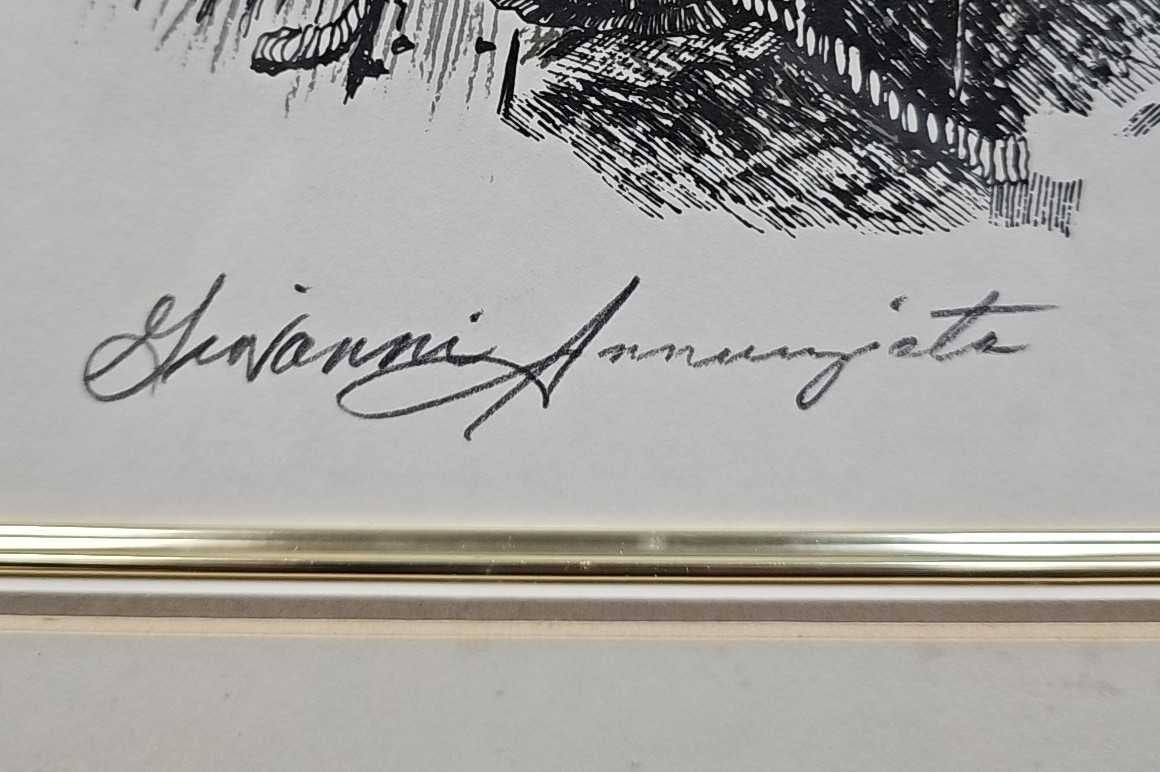 Giovanni Annunziata